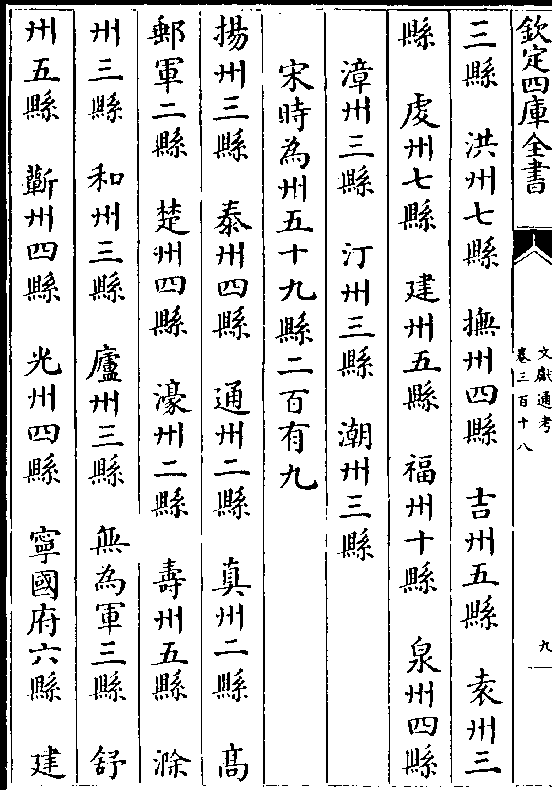 欽定四庫全書
文獻通考
卷三百十八
九
三縣 洪州七縣 撫州四縣 吉州五縣 袁州三
縣 虔州七縣 建州五縣 福州十縣 泉州四縣
漳州三縣 汀州三縣 潮州三縣
宋時為州五十九縣二百有九
揚州三縣 泰州四縣 通州二縣 真州二縣 髙
郵軍二縣 楚州四縣 濠州二縣 壽州五縣 滁
州三縣 和州三縣 廬州三縣 無為軍三縣 舒
州五縣 蘄州四縣 光州四縣 寧國府六縣 建